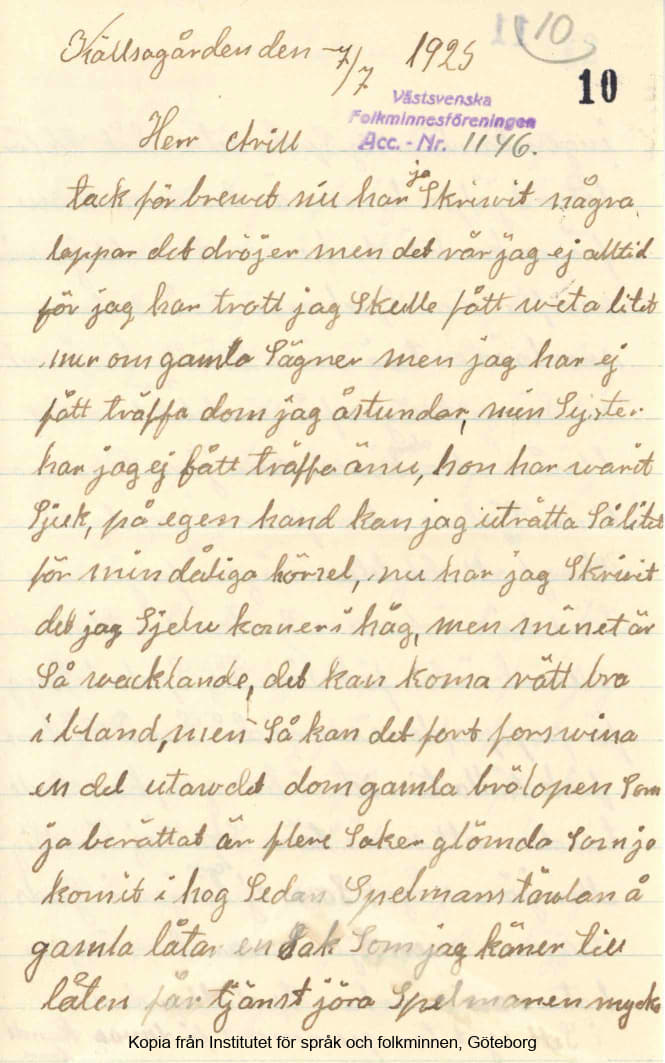 Källsagården den 7/7 1925
10
10
Västsvenska
Folkminnesföreningen
Acc. - Nr. 1146.
Herr Arill
tack för brewet nu har ja Skriwit några
lappar det dröjer men det rår jag ej alltid
för jag har trott jag Skulle fått weta litet
mer om gamla Sägner men jag har ej
fått träffa dom jag åstundar, min Syster
har jag ej fått träffa änu, hon har warit
Sjuk, på egen hand kan jag uträtta Så litet
för min dåliga hörsel, nu har jag Skriwit
det jag Sjelw komer i håg, men minet är
Så wacklande, det kan koma rätt bra
i bland, men Så kan det fort forswina
en del utaw det dom gamla brölopen Som
ja berättat är flere Saker glömda Som ja
komit i hog Sedan Spelmans täwlan å
gamla låtar en Sak Som jag käner till
låten får tjänst jöra Spelmanen mycke
Kopia från Institutet för språk och folkminnen, Göteborg